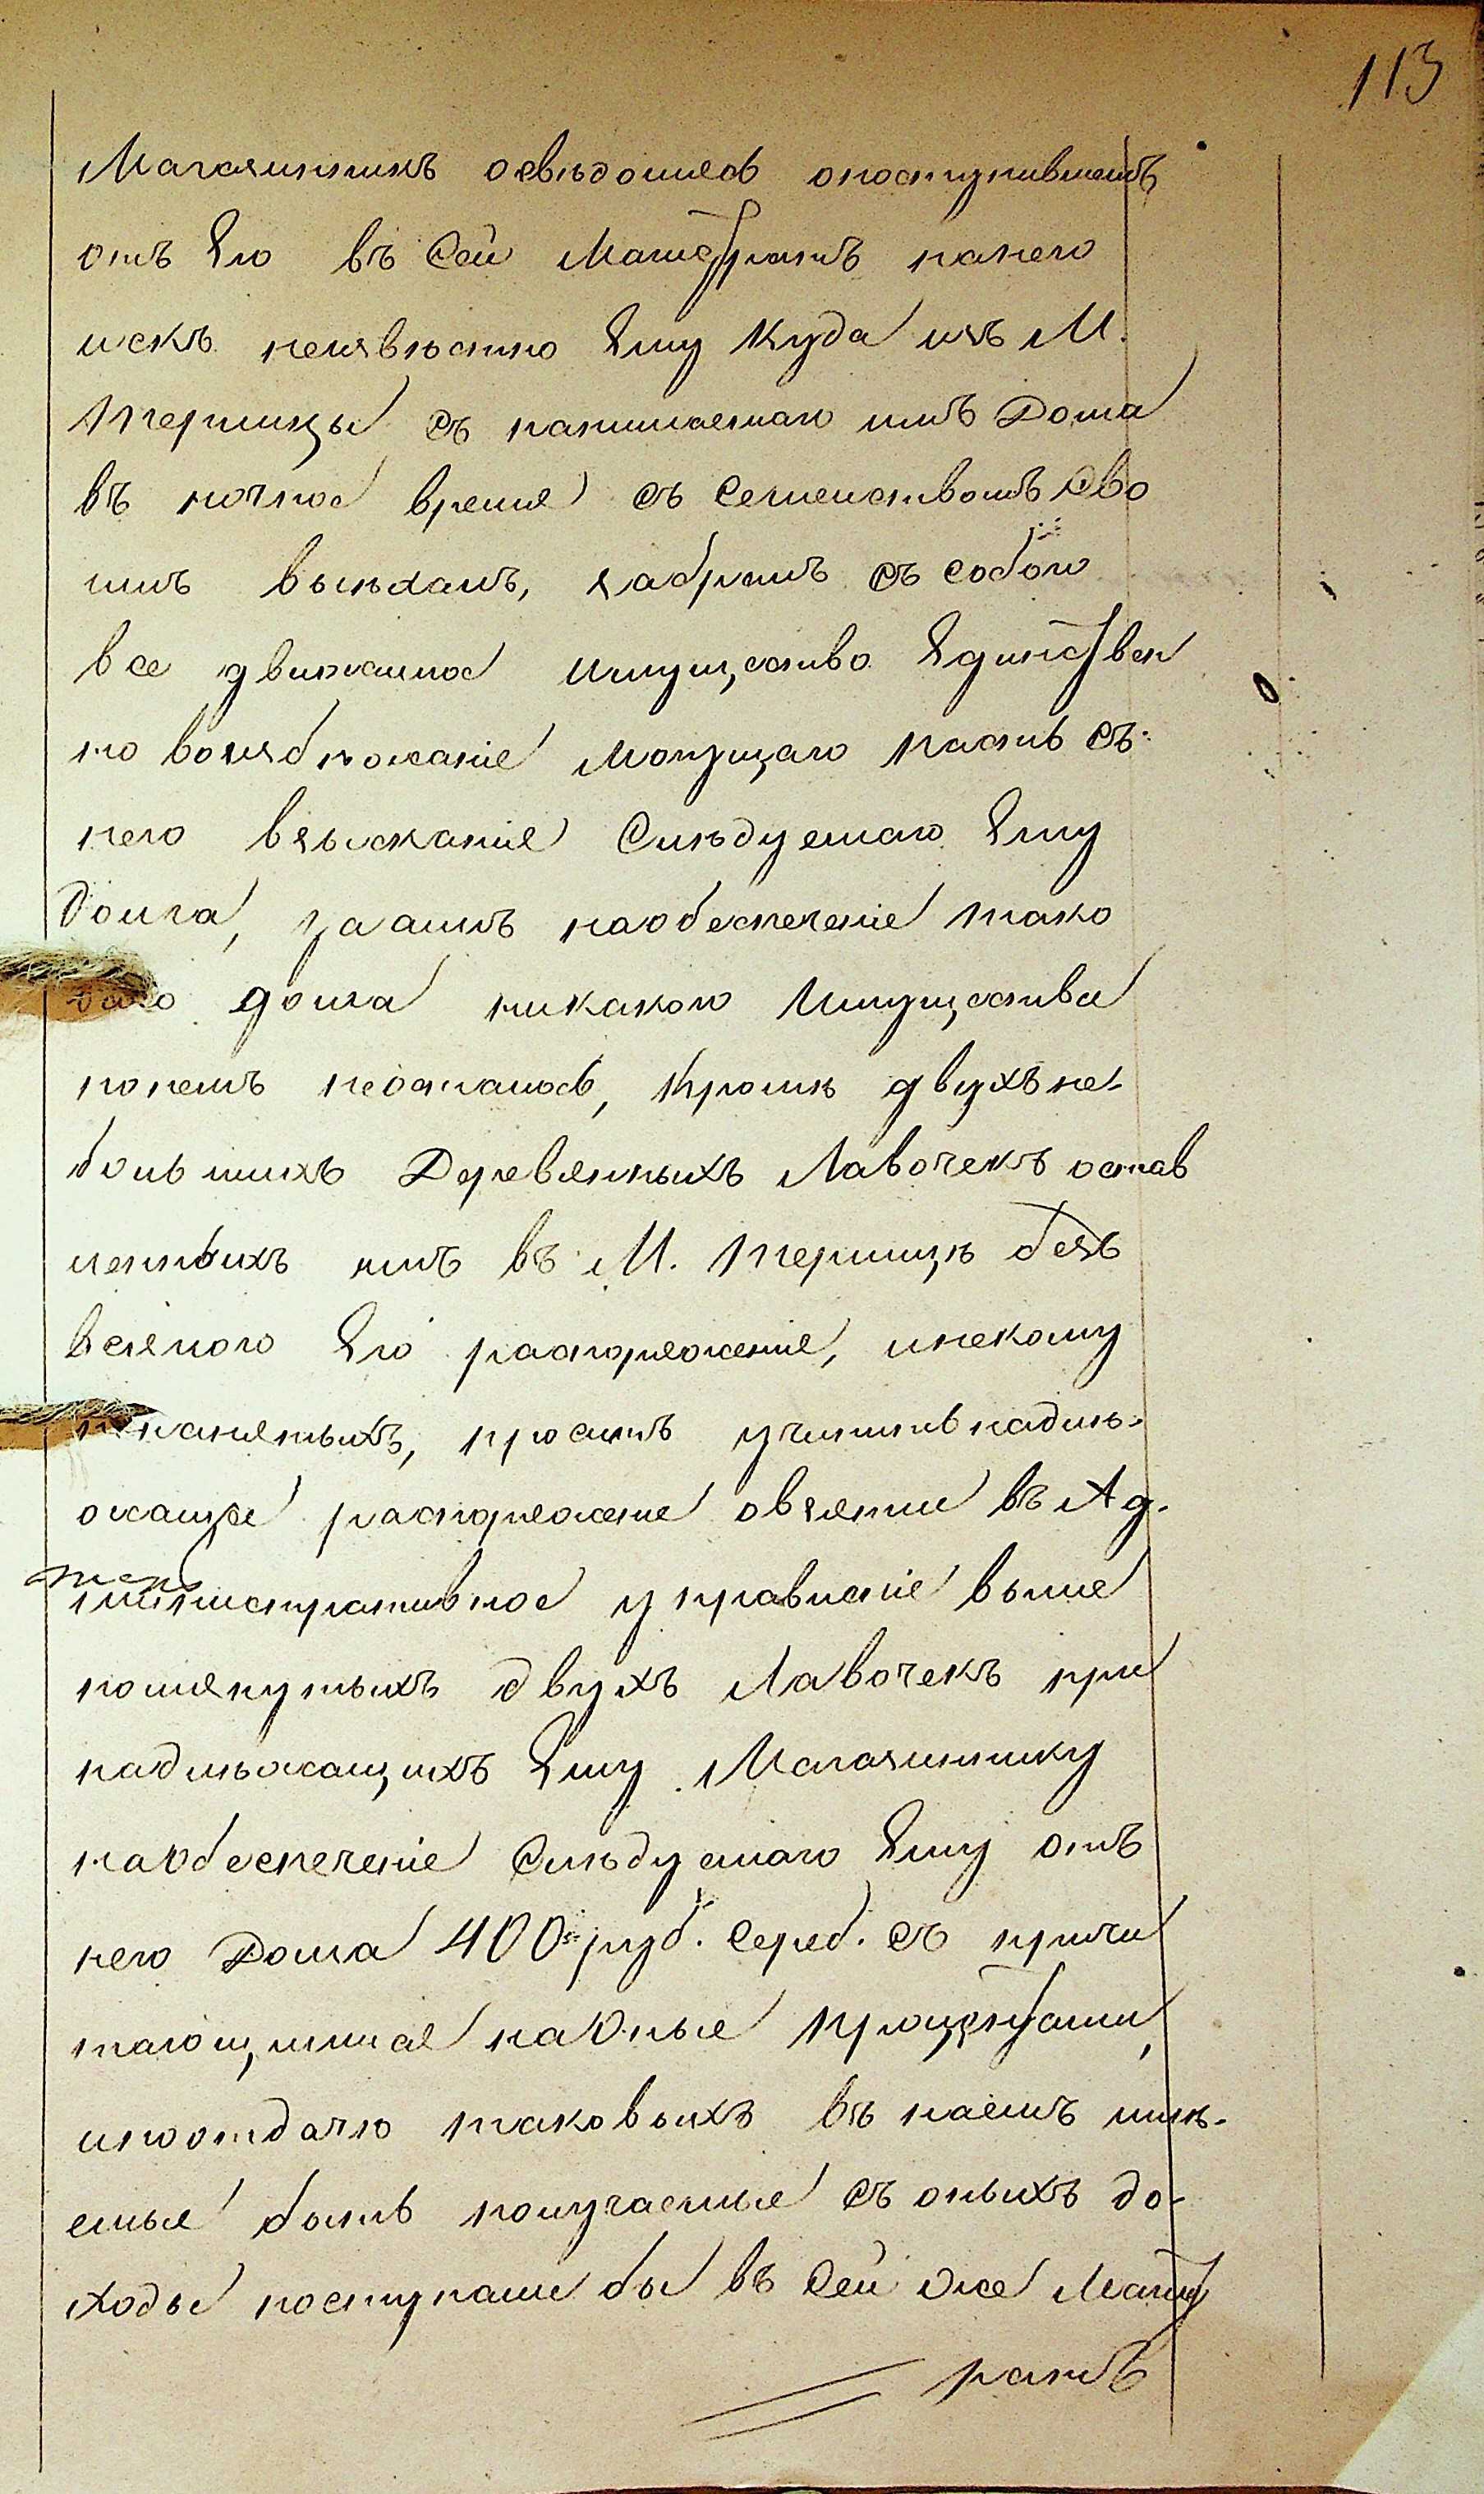 113
Магазинникъ освѣдомясь опоступившемъ
отъ Его въ Сей Магистратъ нанего
искъ неизвѣстно Ему Куда изъ М.
Терлицы съ нанимаемаго имъ Дома
въ ночное время съ Семействомъ Сво
имъ выѣхалъ, забралъ съ Собою
все движимое Имущество Единствен
но воизбѣжаніе Могущаго пасть съ
него взысканія Слѣдуемаго Ему
Долга, за алмъ наобеспеченіе тако
ваго долга никакого Имущества
понемъ неосталось, Кромѣ двухъ не-
большихъ Деревянныхъ Лавочекъ остав
ленныхъ имъ въ М. Терлицѣ безъ
всякого Его распоряженія, инекому
ненанятыхъ, проситъ учинить надлѣ-
жащее распоряженіе овзятіи въ Ад-
министративное управленіе выше
помянутыхъ двухъ Лавочекъ при
надлѣжащихъ Ему Магазиннику
наобеспеченіе Слѣдуемаго Ему отъ
него Долга 400 руб. Сереб. съ причи
тающимися наоные процентами,
ипоотдачѣ таковыхъ въ наемъ имѣ-
емые быть получаемые съ оныхъ до-
ходы поступали бы въ Сей Же Магист
ратъ